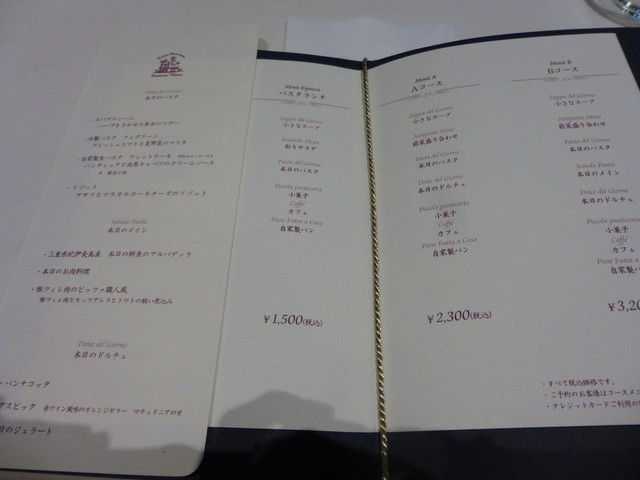 Pasta del Giorno
本日のパスタ
・冷製パスタ フェデリーニ
フレッシュトマトと夏野菜のマリネ
・自家製生パスタ フェットチーネ
パンチェッタと高原キャベツのクリームソース
・リゾット
アサリとマスカルポーネチーズのリゾット
Secondo Piatto
本日のメイン
・三重県紀伊長島産 本日の鮮魚のアルバデッラ
・本日のお肉料理
・豚フィレ肉のピッツァ職人風
豚フィレ肉とモッツアレラとトマトの軽い煮込み
Dolce del Giorno
本日のドルチェ
・パンナコッタ
アスピック 赤ワイン風味のオレンジゼリー マチェドニアのせ
日のジェラート
Menù Espresso
パスタランチ
Zuppa del Giorno
小さなスープ
Insalata Mista
彩りサラダ
Pasta del Giorno
本日のパスタ
Piccola pasticceria
小菓子
Caffè
カフェ
Pane Fatto a Casa
自家製パン
¥1,500(税込)
Menù A
Aコース
Zuppa del Giorno
小さなスープ
Antipasto Misto
前菜盛り合わせ
Pasta del Giorno
本日のパスタ
Dolce del Giorno
本日のドルチェ
Piccola pasticceria
小菓子
Caffè
カフェ
Pane Fatto a Casa
自家製パン
¥2,300(税込)
Menù B
Bコース
Zuppa del Giorno
小さなスープ
Antipasto Misto
前菜盛り合わせ
Pasta del Giorno
本日のパスタ
Secondo Piatto
本日のメイン
Dolce del Giorno
本日のドルチェ
Piccola pasticceria
小菓子
Caffè
カフェ
Pane Fatto a
自家製パン
¥3,20
・すべて税込価格です。
・ご予約のお客様はコースメニ
・クレジットカードご利用の